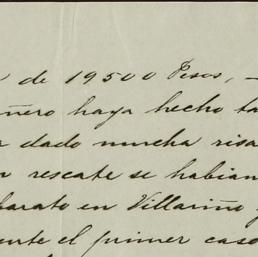 de 19500 Pesos, —
ñero haya hecho ta
dado mucha risa
rescate se habian
barato en Villariño
ente el primer caso